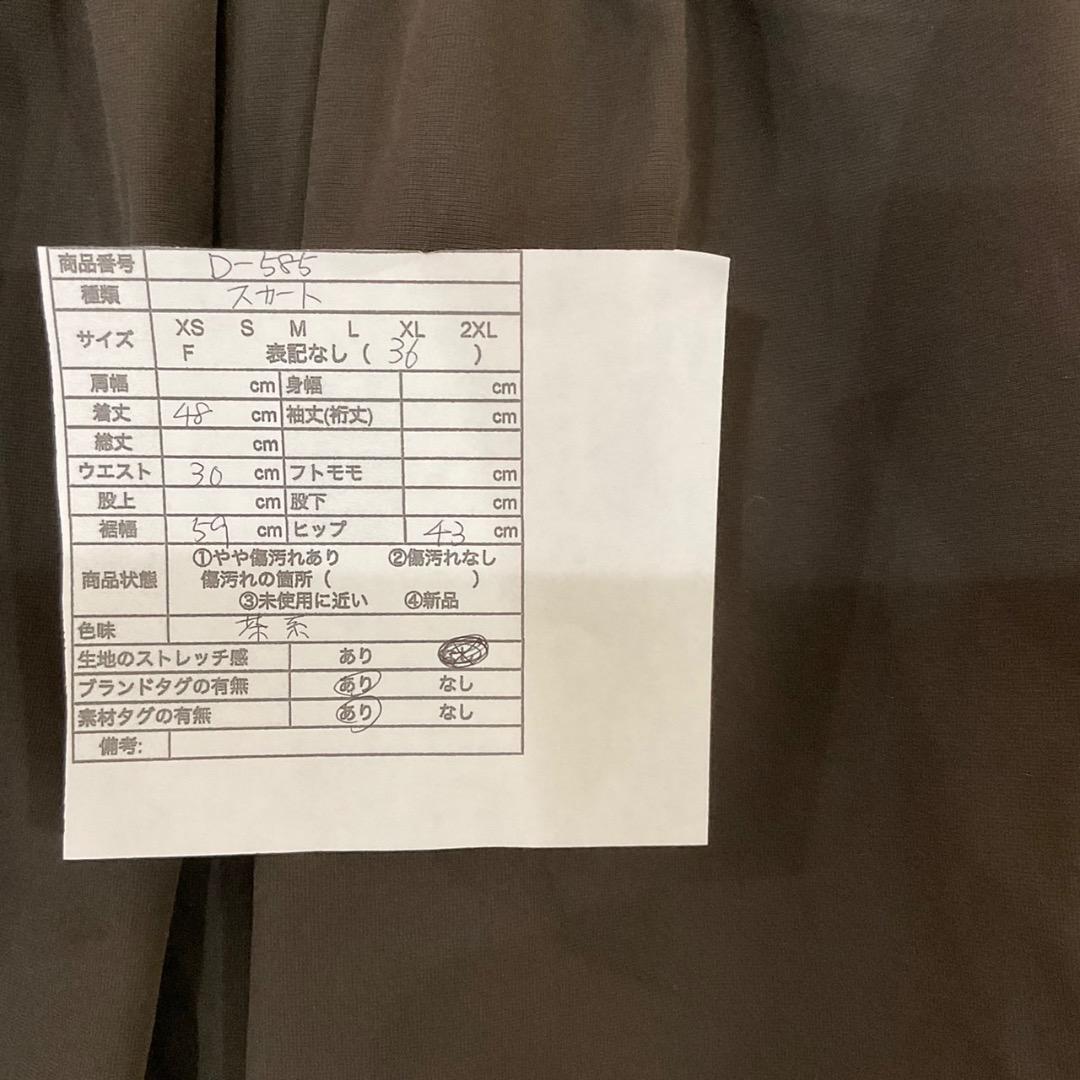 商品番号 D-585
種類 スカート
サイズ XS S M L XL 2XL
F 表記なし ( 36 )
肩幅 cm 身幅 cm
着丈 48 cm 袖丈(裄丈) cm
総丈 cm
ウエスト 30 cm フトモモ cm
股上 cm 股下 cm
裾幅 59 cm ヒップ 43 cm
商品状態 ①やや傷汚れあり ②傷汚れなし
傷汚れの箇所 ( )
③未使用に近い ④新品
色味 茶系
生地のストレッチ感 あり
ブランドタグの有無 あり なし
素材タグの有無 あり なし
備考: